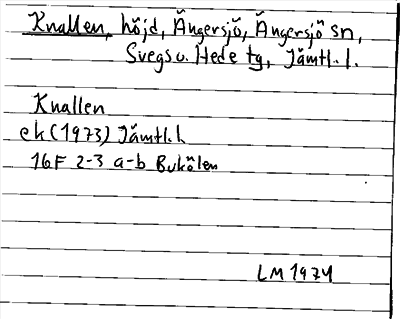 Knallen, höjd, Ängersjö, Ängersjö sn,
Svegs o. Hede tg, Jämtl. l.
Knallen
ek (1973) Jämtl. l
16F 2-3 a-b Bukölen
LM 1974